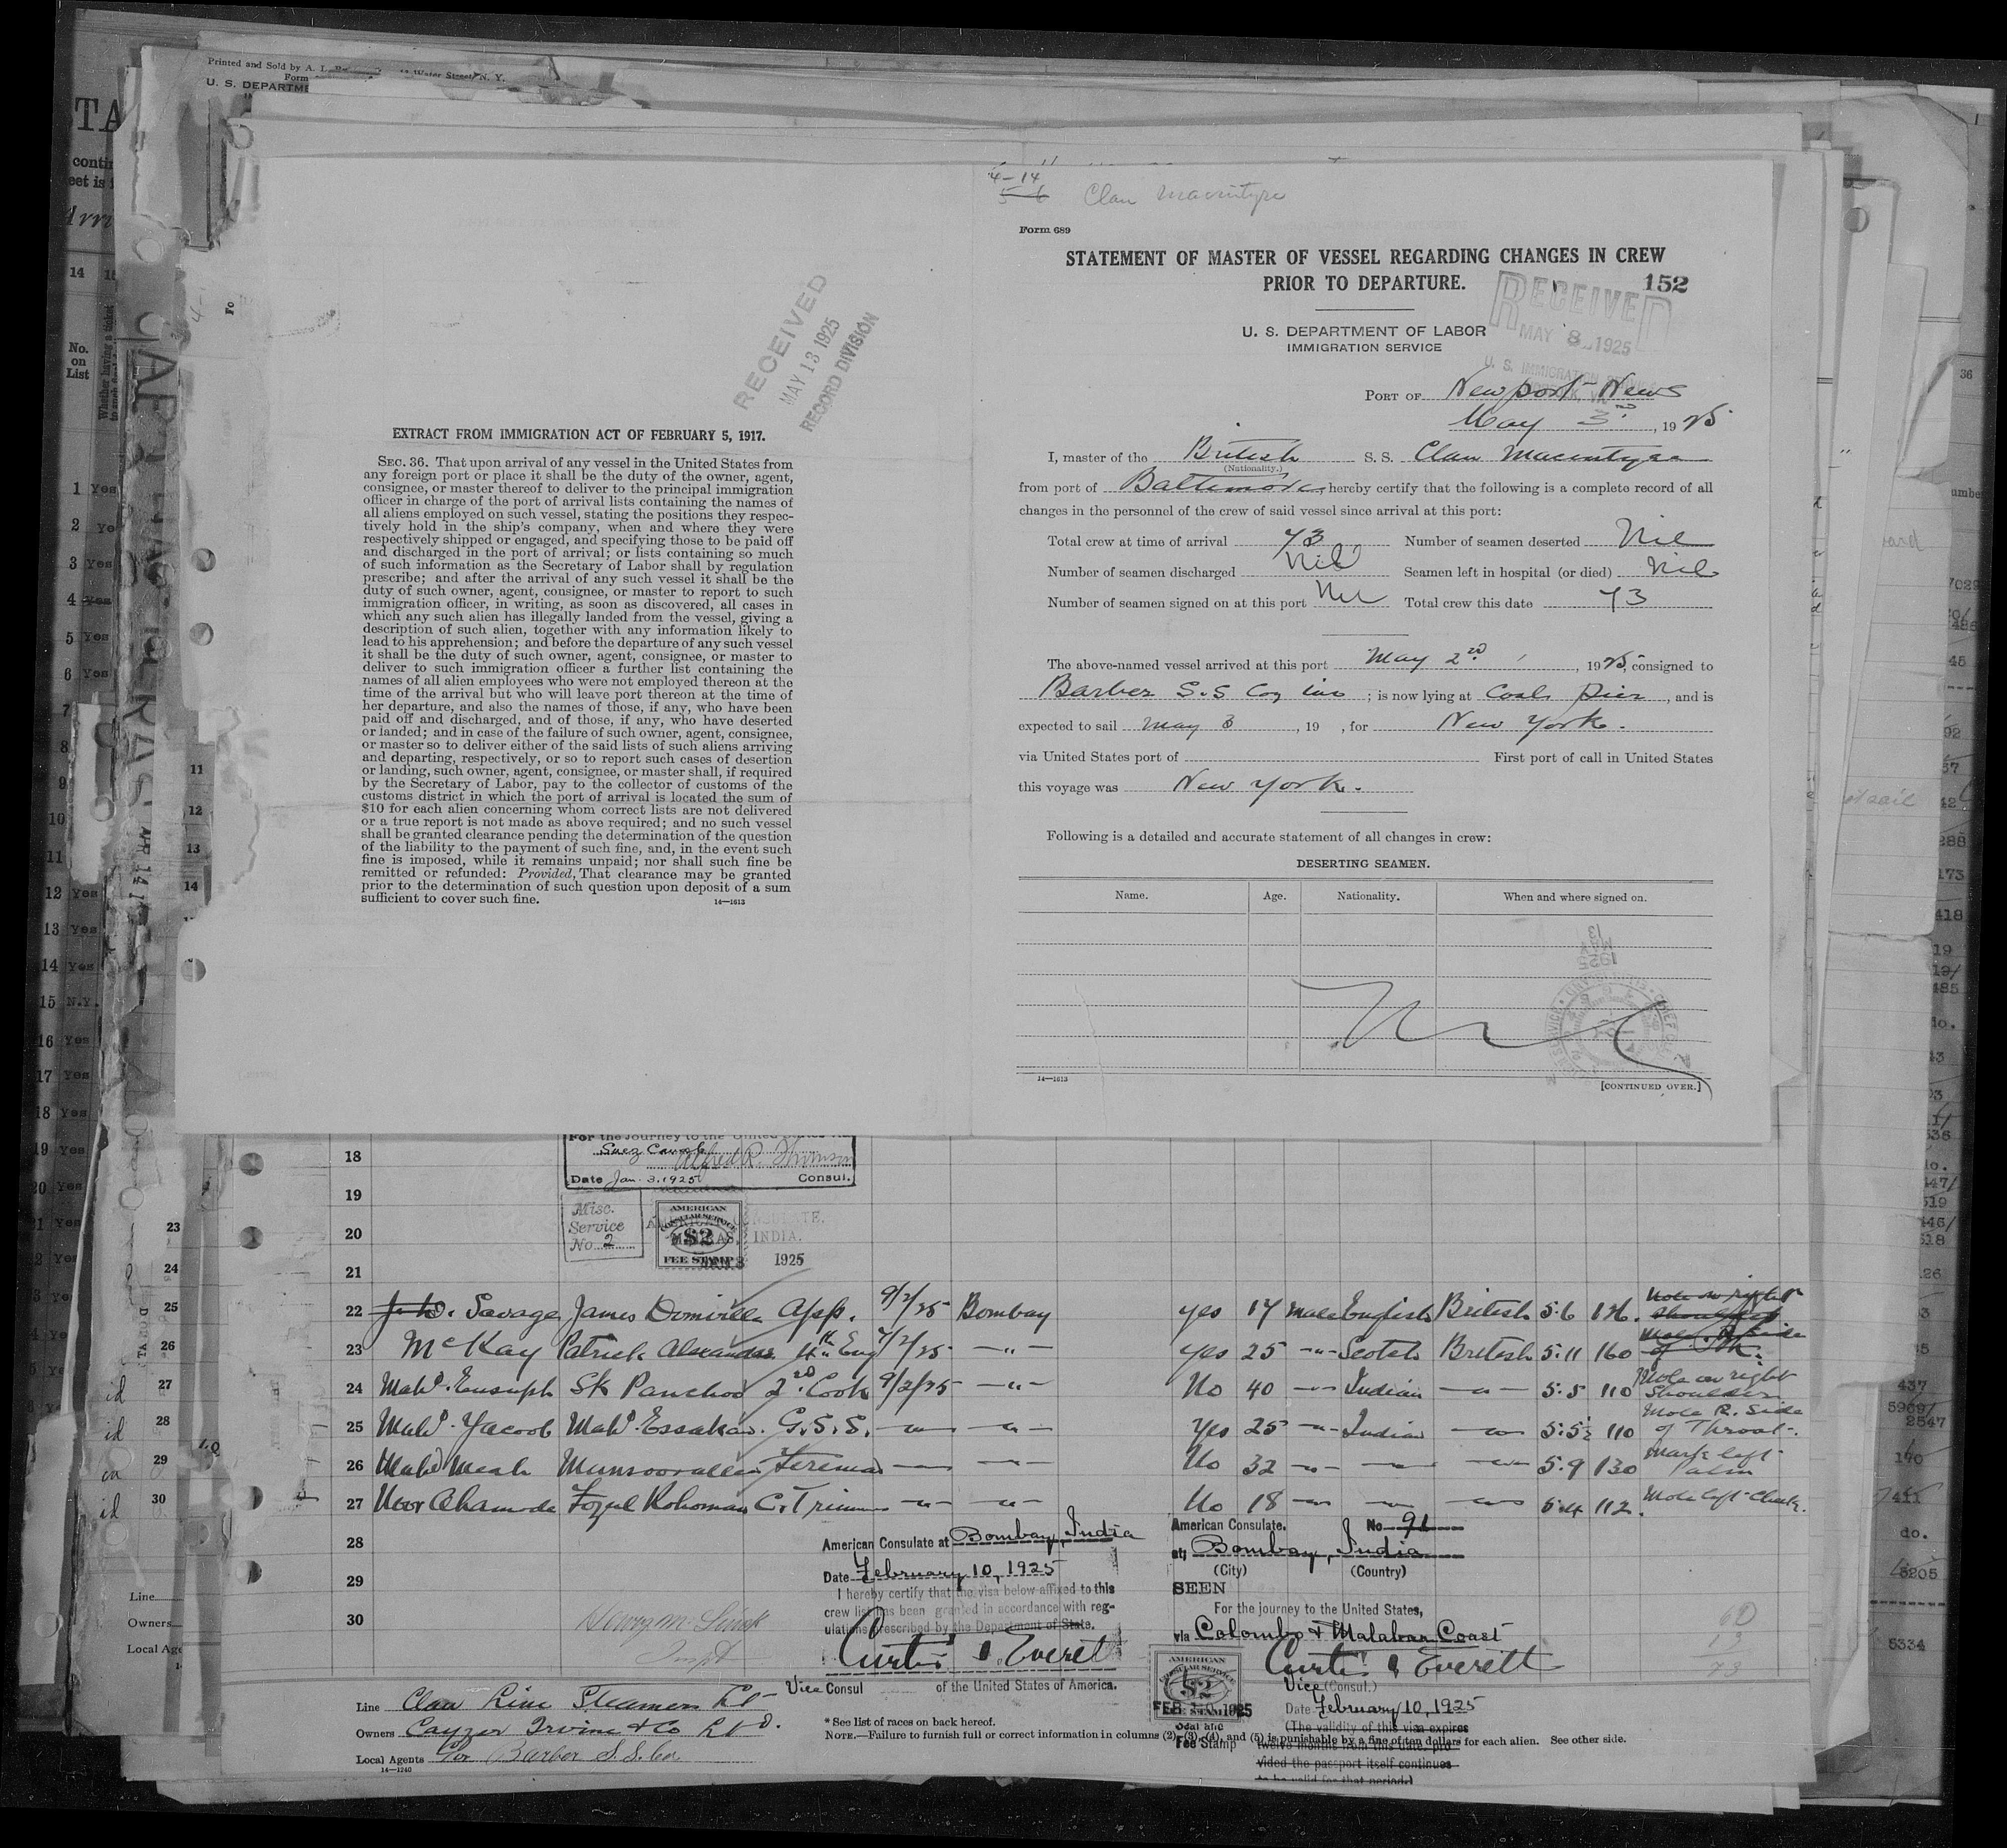 Printed and Sold by A. L.
Water Street, N. Y.
Form
U. S. DEPARTME
4-14
5 6
Clan Macintyre
Form 689
STATEMENT OF MASTER OF VESSEL REGARDING CHANGES IN CREW
PRIOR TO DEPARTURE.
152
U. S. DEPARTMENT OF LABOR
IMMIGRATION SERVICE
RECEIVED
MAY 8 1925
U. S. IMMIGRATION
PORT OF Newport News
May 3rd, 1925
I, master of the British S. S. Clan Macintyre
(Nationality.)
from port of Baltimore, hereby certify that the following is a complete record of all
changes in the personnel of the crew of said vessel since arrival at this port:
Total crew at time of arrival 73 Number of seamen deserted Nil
Number of seamen discharged Nil Seamen left in hospital (or died) Nil
Number of seamen signed on at this port Nil Total crew this date 73
The above-named vessel arrived at this port May 2nd, 1925, consigned to
Barber S.S Coy Inc ; is now lying at Coal Pier, and is
expected to sail May 3, 19 , for New York.
via United States port of First port of call in United States
this voyage was New York.
Following is a detailed and accurate statement of all changes in crew:
DESERTING SEAMEN.
Name. Age. Nationality. When and where signed on.
Nil
14—1613
[CONTINUED OVER.]
RECEIVED
MAY 13 1925
RECORD DIVISION
EXTRACT FROM IMMIGRATION ACT OF FEBRUARY 5, 1917.
SEC. 36. That upon arrival of any vessel in the United States from
any foreign port or place it shall be the duty of the owner, agent,
consignee, or master thereof to deliver to the principal immigration
officer in charge of the port of arrival lists containing the names of
all aliens employed on such vessel, stating the positions they respec-
tively hold in the ship's company, when and where they were
respectively shipped or engaged, and specifying those to be paid off
and discharged in the port of arrival; or lists containing so much
of such information as the Secretary of Labor shall by regulation
prescribe; and after the arrival of any such vessel it shall be the
duty of such owner, agent, consignee, or master to report to such
immigration officer, in writing, as soon as discovered, all cases in
which any such alien has illegally landed from the vessel, giving a
description of such alien, together with any information likely to
lead to his apprehension; and before the departure of any such vessel
it shall be the duty of such owner, agent, consignee, or master to
deliver to such immigration officer a further list containing the
names of all alien employees who were not employed thereon at the
time of the arrival but who will leave port thereon at the time of
her departure, and also the names of those, if any, who have been
paid off and discharged, and of those, if any, who have deserted
or landed; and in case of the failure of such owner, agent, consignee,
or master so to deliver either of the said lists of such aliens arriving
and departing, respectively, or so to report such cases of desertion
or landing, such owner, agent, consignee, or master shall, if required
by the Secretary of Labor, pay to the collector of customs of the
customs district in which the port of arrival is located the sum of
$10 for each alien concerning whom correct lists are not delivered
or a true report is not made as above required; and no such vessel
shall be granted clearance pending the determination of the question
of the liability to the payment of such fine, and, in the event such
fine is imposed, while it remains unpaid; nor shall such fine be
remitted or refunded: Provided, That clearance may be granted
prior to the determination of such question upon deposit of a sum
sufficient to cover such fine.
14—1613
For the journey to the United States
Suez Canal
Date Jan. 3. 1925 Consul.
Misc.
Service
No 2
AMERICAN
CONSULAR SERVICE
$2
FEE STAMP
MADRAS, INDIA.
1925
18
19
20
21
22 J. W. Savage James Domville App. 9/2/25 Bombay yes 17 male English British 5.6 126. Mole on right shoulder
23 McKay Patrick Alexander 4th Eng 7/2/25 —"— yes 25 —"— Scotch British 5.11 160 Mole R. Side of
24 Mahd. Eusuph Sk Panchoo 2nd Cook 9/2/25 —"— No 40 —"— Indian —"— 5.5 110 Mole on right Shoulder
25 Mahd. Yacoob Mahd. Essakar G.S.S. —"— —"— Yes 25 —"— Indian —"— 5.5½ 110 Mole R. Side of Throat.
26 Mahd Meah Munsoorallee Fireman —"— —"— No 32 —"— —"— —"— 5.9 130 Mark left Palm
27 Noor Ahamode Fozul Rohoman C. Trimmer —"— —"— No 18 —"— —"— —"— 5.4 112. Mole left Cheek.
28
29
30
American Consulate at Bombay, India
Date February 10, 1925
I hereby certify that the visa below affixed to this
crew list has been granted in accordance with reg-
ulations prescribed by the Department of State.
Curtis Everett
Vice Consul of the United States of America.
American Consulate. No 91
at Bombay, India
(City) (Country)
SEEN
For the journey to the United States,
via Colombo & Malabar Coast
Curtis Everett
Vice (Consul.)
Date February 10, 1925
(The validity of this visa expires
twelve months from this date, pro-
vided the passport itself continues
to be valid for that period.)
AMERICAN
CONSULAR SERVICE
$2
FEB 10 1925
Seal and
Fee Stamp
60
13
73
Line Clan Line Steamers Ltd
Owners Cayzer Irvine & Co Ltd.
Local Agents for Barber S.S. Co
14—1240
* See list of races on back hereof.
NOTE.—Failure to furnish full or correct information in columns (2), (3), (4), and (5) is punishable by a fine of ten dollars for each alien. See other side.